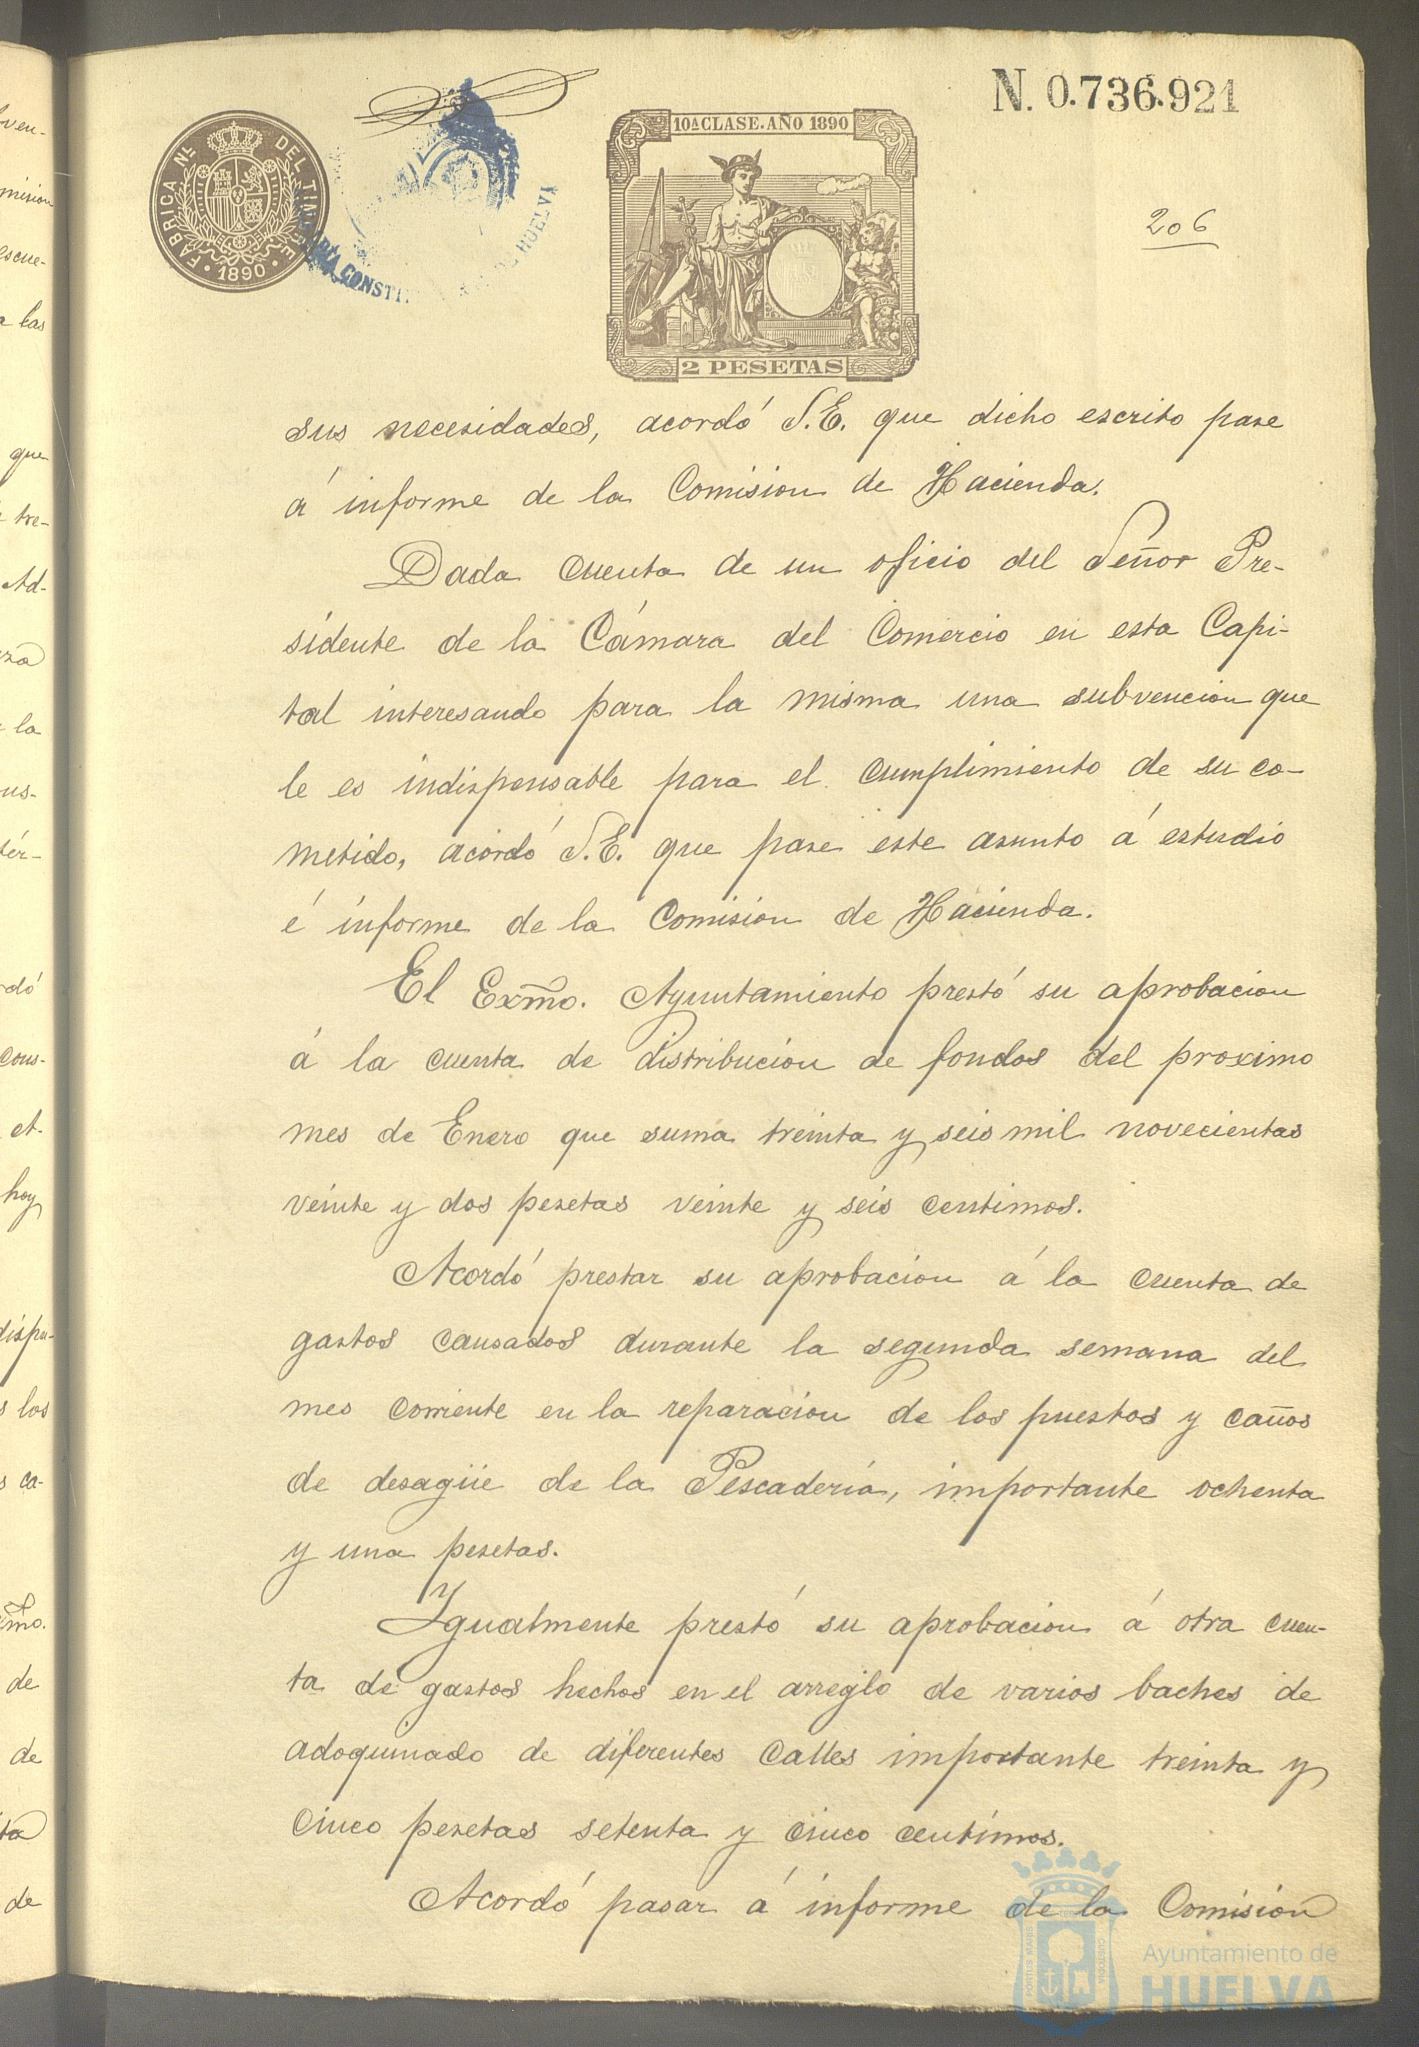 N. 0.736.921
FABRICA Nˡ DEL TIMBRE
1890
CONSTI
HUELVA
10ª CLASE. AÑO 1890
2 PESETAS
206
sus necesidades, acordó S.E. que dicho escrito pase
á informe de la Comision de Hacienda.
Dada cuenta de un oficio del Señor Pre-
sidente de la Cámara del Comercio en esta Capi-
tal interesando para la misma una subvencion que
le es indispensable para el cumplimiento de su co-
metido, acordó S.E. que pase este asunto á estudio
é informe de la Comision de Hacienda.
El Exmo. Ayuntamiento prestó su aprobacion
á la cuenta de distribucion de fondos del proximo
mes de Enero que suma treinta y seis mil novecientas
veinte y dos pesetas veinte y seis centimos.
Acordó prestar su aprobacion á la cuenta de
gastos causados durante la segunda semana del
mes corriente en la reparacion de los puestos y caños
de desagüe de la Pescadería, importante ochenta
y una pesetas.
Igualmente prestó su aprobacion á otra cuen-
ta de gastos hechos en el arreglo de varios baches de
adoquinado de diferentes Calles importante treinta y
cinco pesetas setenta y cinco centimos.
Acordó pasar á informe de la Comision
Ayuntamiento de
HUELVA
ven-
mision
escue-
a las
que
tre-
Ad-
la
us-
tér-
rdó
cons-
et.
hoy
dispu-
s los
s ca-
xmo.
de
de
ta
de